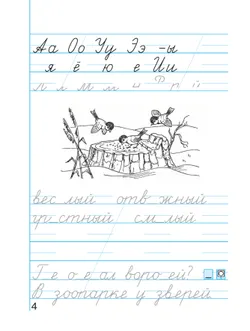 Аа Оо Уу Ээ -ы
я ё ю е Ии
л м
вес лый отв жный
гр стный см лый
Г е о е ал воро ей?
В зоопарке у зверей
4